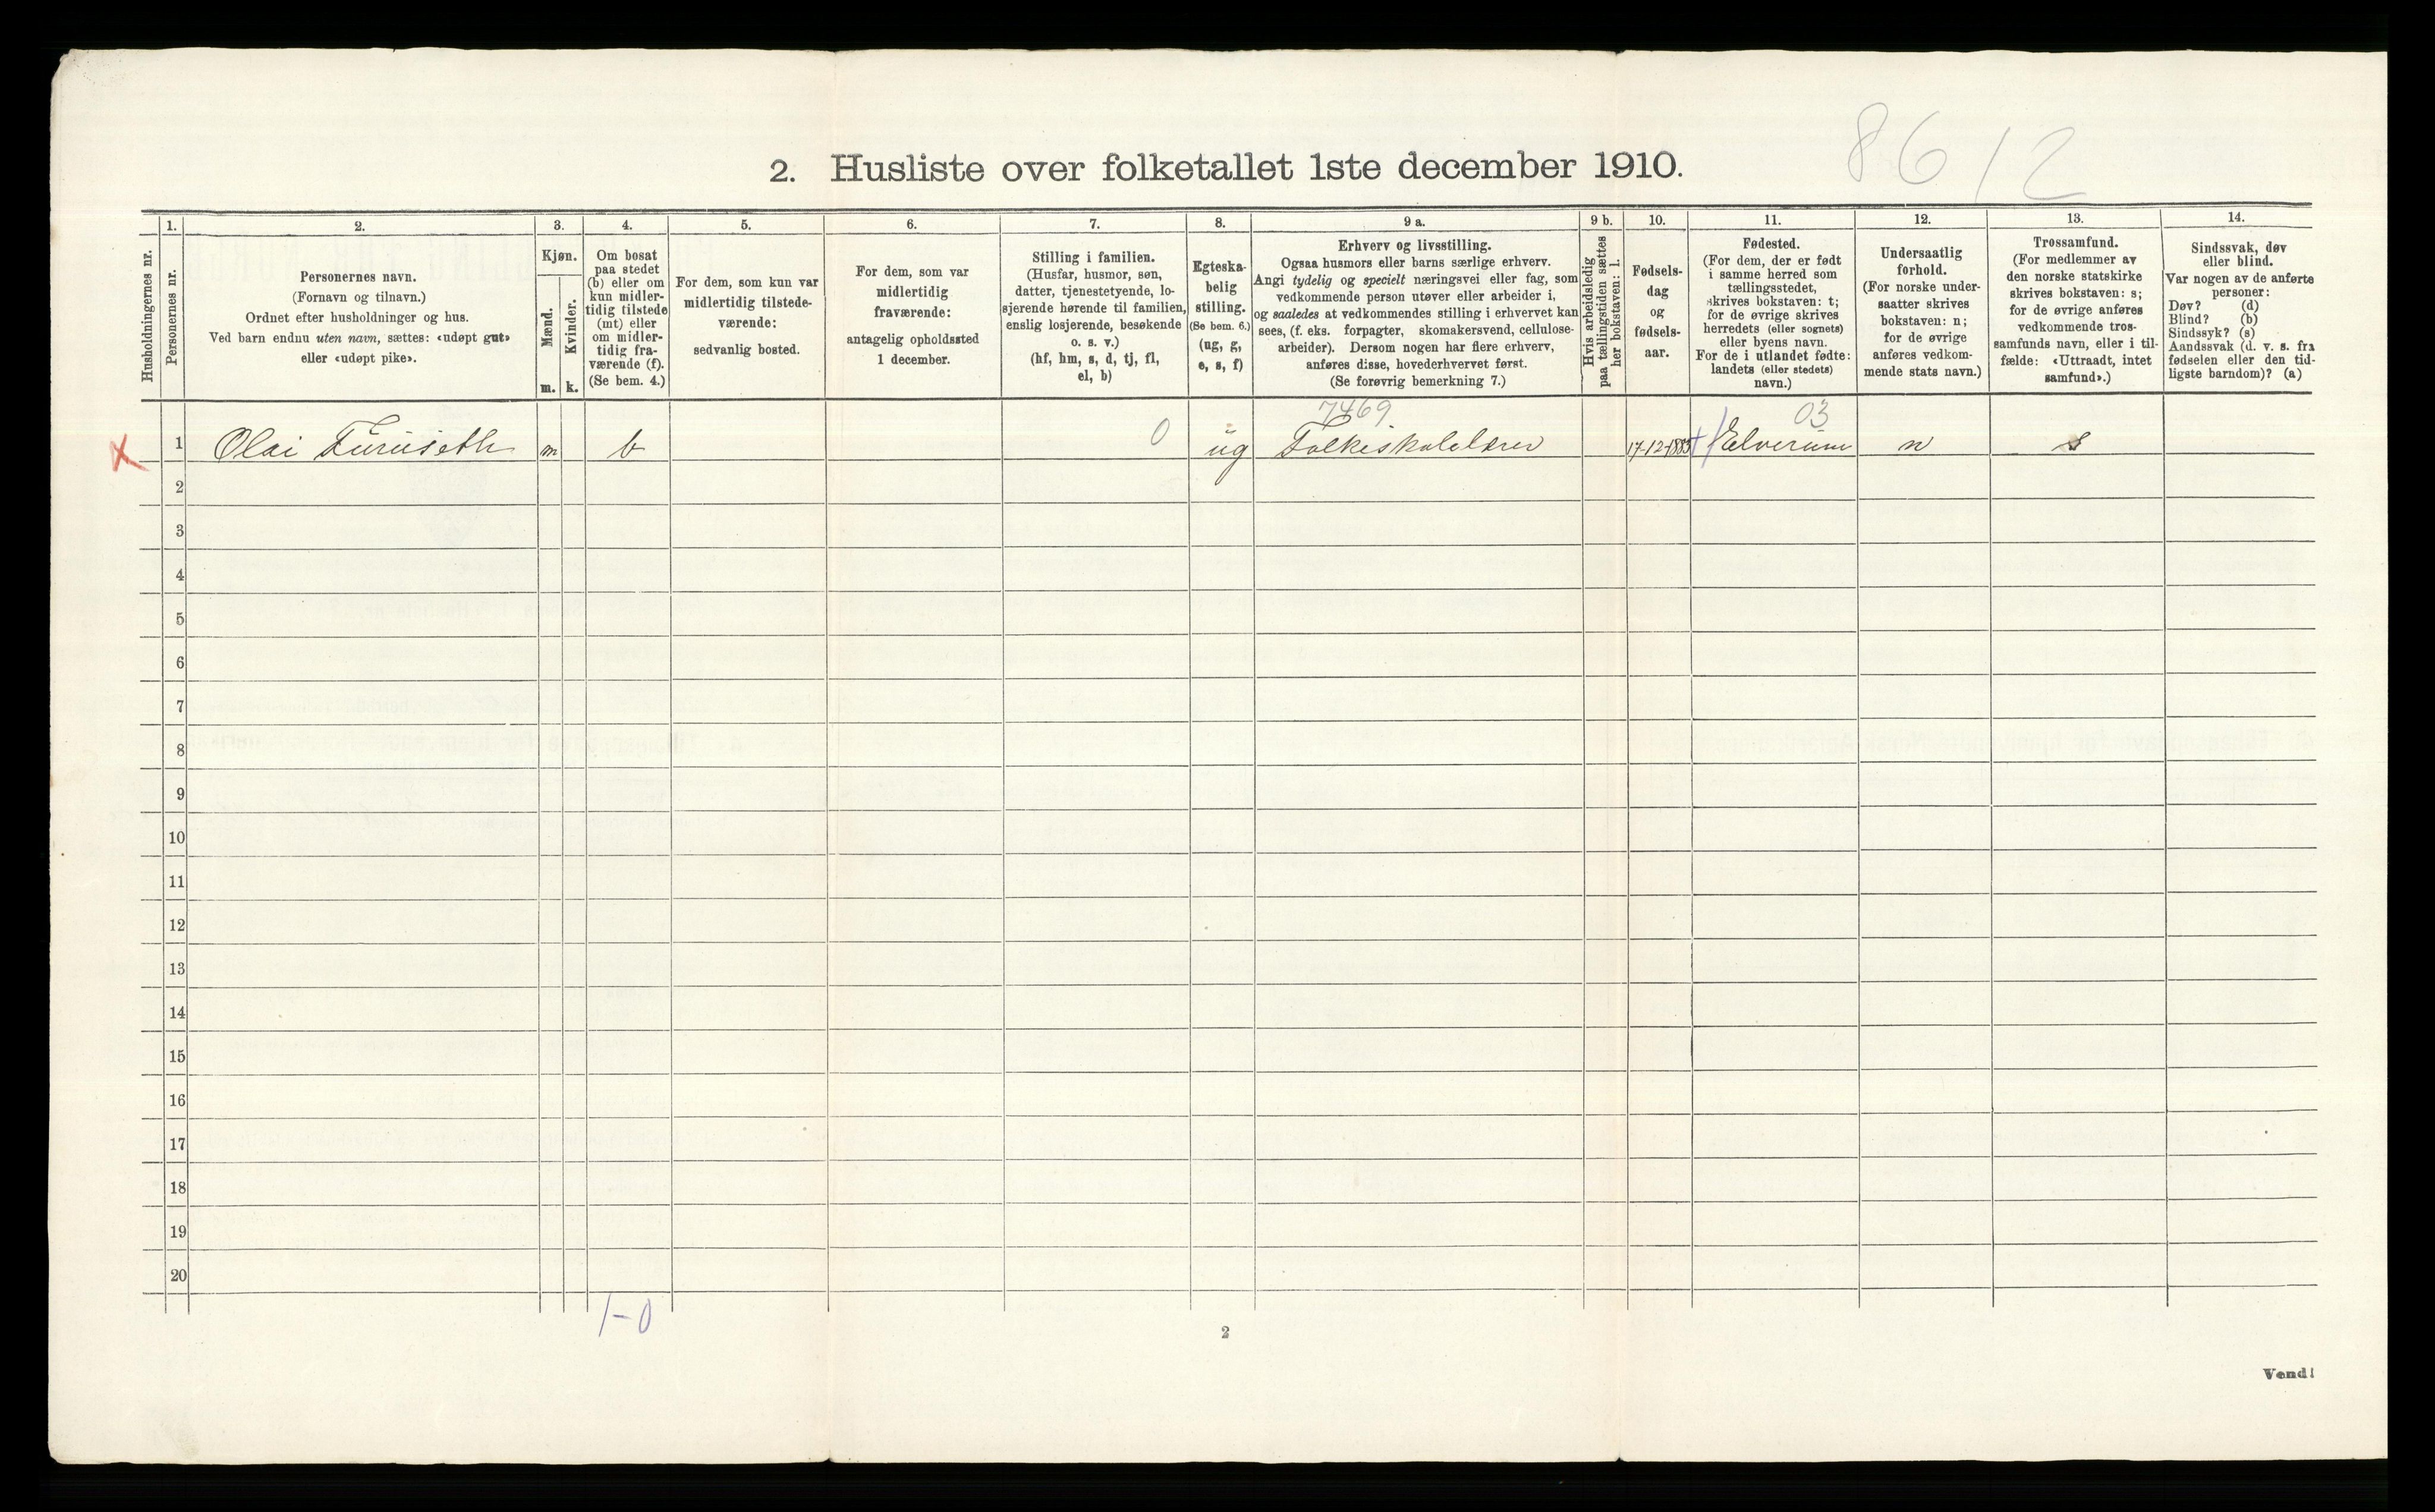 8612
2. Husliste over folketallet 1ste december 1910.
Husholdningernes nr.
1.
Personernes nr.
2.
Personernes navn.
(Fornavn og tilnavn.)
Ordnet efter husholdninger og hus.
Ved barn endnu uten navn, sættes: «udøpt gut»
eller «udøpt pike».
3.
Kjøn.
Mænd.
m.
Kvinder.
k.
4.
Om bosat
paa stedet
(b) eller om
kun midler-
tidig tilstede
(mt) eller
om midler-
tidig fra-
værende (f).
(Se bem. 4.)
5.
For dem, som kun var
midlertidig tilstede-
værende:
sedvanlig bosted.
6.
For dem, som var
midlertidig
fraværende:
antagelig opholdssted
1 december.
7.
Stilling i familien.
(Husfar, husmor, søn,
datter, tjenestetyende, lo-
sjerende hørende til familien,
enslig losjerende, besøkende
o. s. v.)
(hf, hm, s, d, tj, fl,
el, b)
8.
Egteska-
belig
stilling.
(Se bem. 6.)
(ug, g,
e, s, f)
9 a.
Erhverv og livsstilling.
Ogsaa husmors eller barns særlige erhverv.
Angi tydelig og specielt næringsvei eller fag, som
vedkommende person utøver eller arbeider i,
og saaledes at vedkommendes stilling i erhvervet kan
sees, (f. eks. forpagter, skomakersvend, cellulose-
arbeider). Dersom nogen har flere erhverv,
anføres disse, hovederhvervet først.
(Se forøvrig bemerkning 7.)
9 b.
Hvis arbeidsledig
paa tællingstiden sættes
her bokstaven: l.
10.
Fødsels-
dag
og
fødsels-
aar.
11.
Fødested.
(For dem, der er født
i samme herred som
tællingsstedet,
skrives bokstaven: t;
for de øvrige skrives
herredets (eller sognets)
eller byens navn.
For de i utlandet fødte:
landets (eller stedets)
navn.)
12.
Undersaatlig
forhold.
(For norske under-
saatter skrives
bokstaven: n;
for de øvrige
anføres vedkom-
mende stats navn.)
13.
Trossamfund.
(For medlemmer av
den norske statskirke
skrives bokstaven: s;
for de øvrige anføres
vedkommende tros-
samfunds navn, eller i til-
fælde: «Uttraadt, intet
samfund».)
14.
Sindssvak, døv
eller blind.
Var nogen av de anførte
personer:
Døv? (d)
Blind? (b)
Sindssyk? (s)
Aandssvak (d. v. s. fra
fødselen eller den tid-
ligste barndom)? (a)
7469 03
X 1 Olai Furuseth m b 0 ug Folkeskolelærer 17-12-1883 Elverum n s
2
3
4
5
6
7
8
9
10
11
12
13
14
15
16
17
18
19
20
1-0
2
Vend!